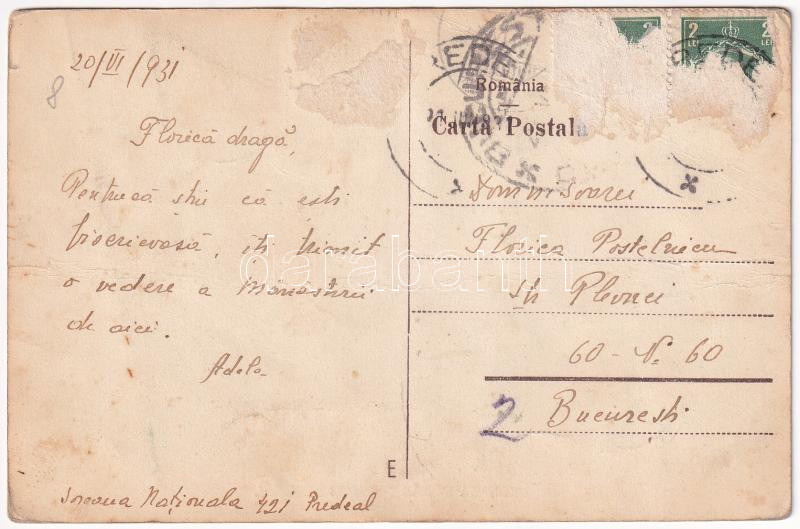 20/VI/931
8
Florică dragă,
Pentrucă știu că ești
bisericoasă, iți trimit
o vedere a Mânăstirii
de aici.
Adela
Șoseaua Naționala 421 Predeal
E
2 LEI 2 LEI
România
Carta Postala
Domnisoarei
Florica Postelnicu
Str Plevnei
60 - No 60
București
2
darabanth